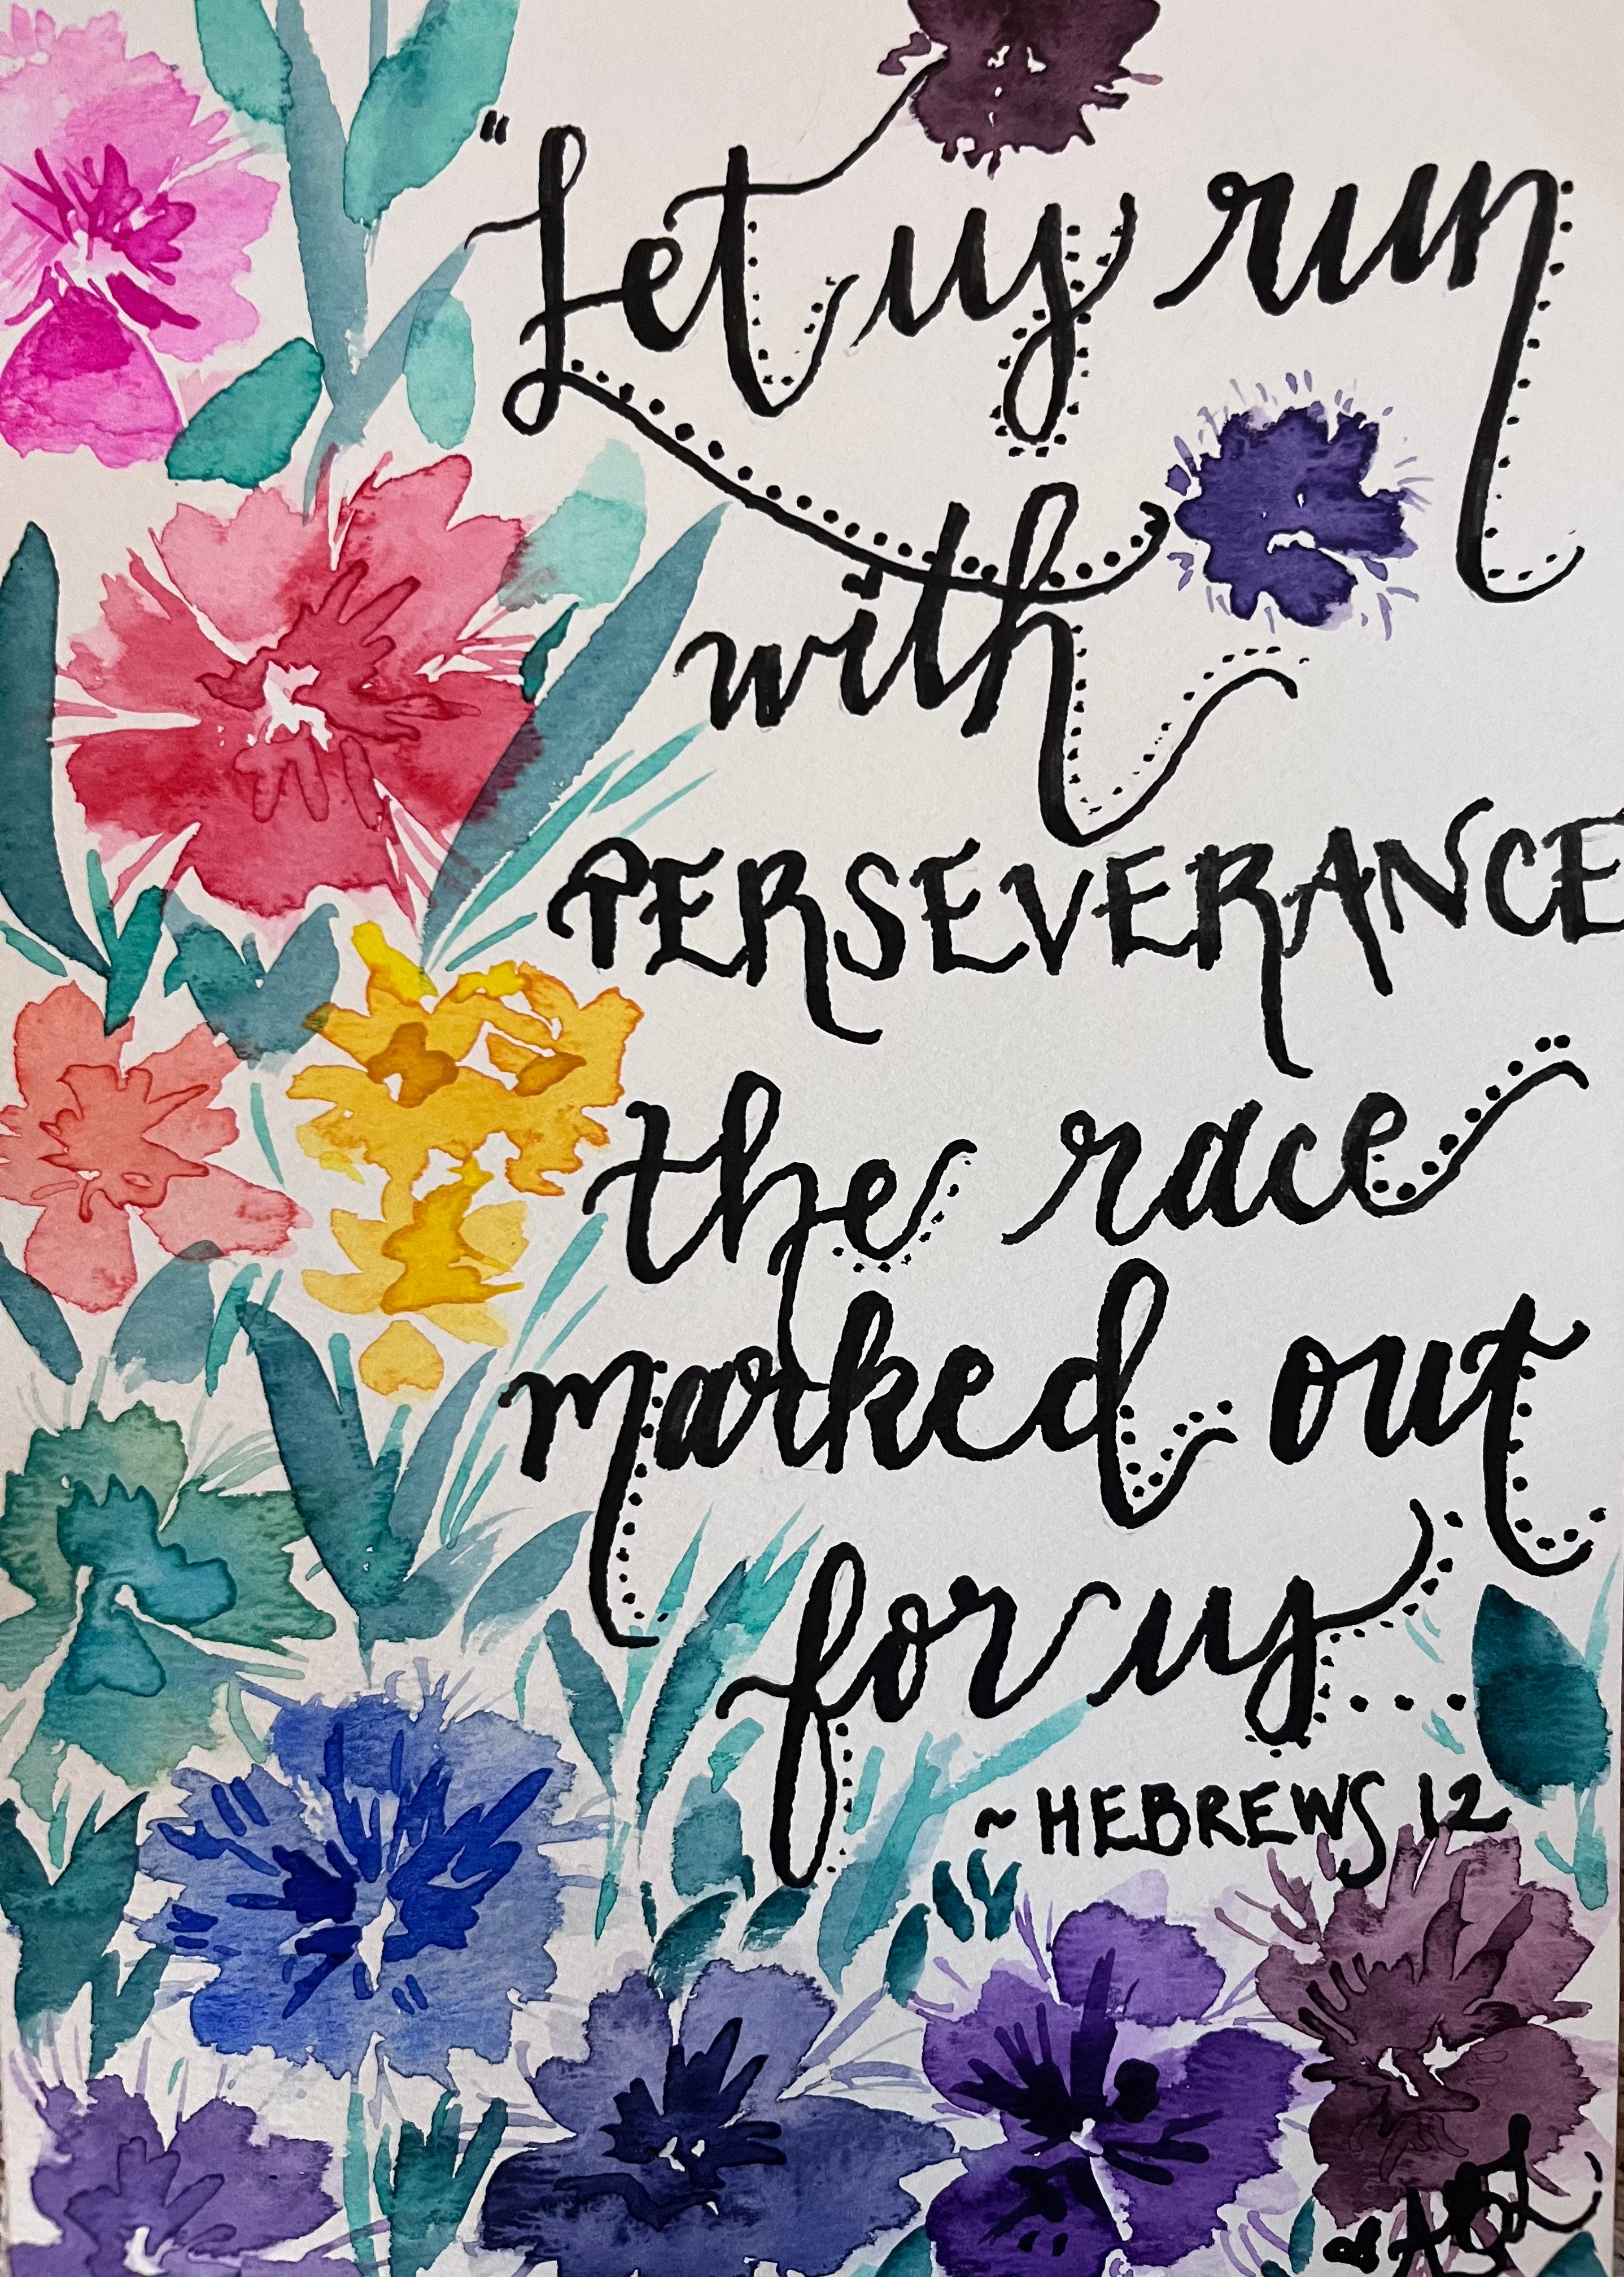 "Let us run
with
PERSEVERANCE
the race
marked out
for us
~HEBREWS 12